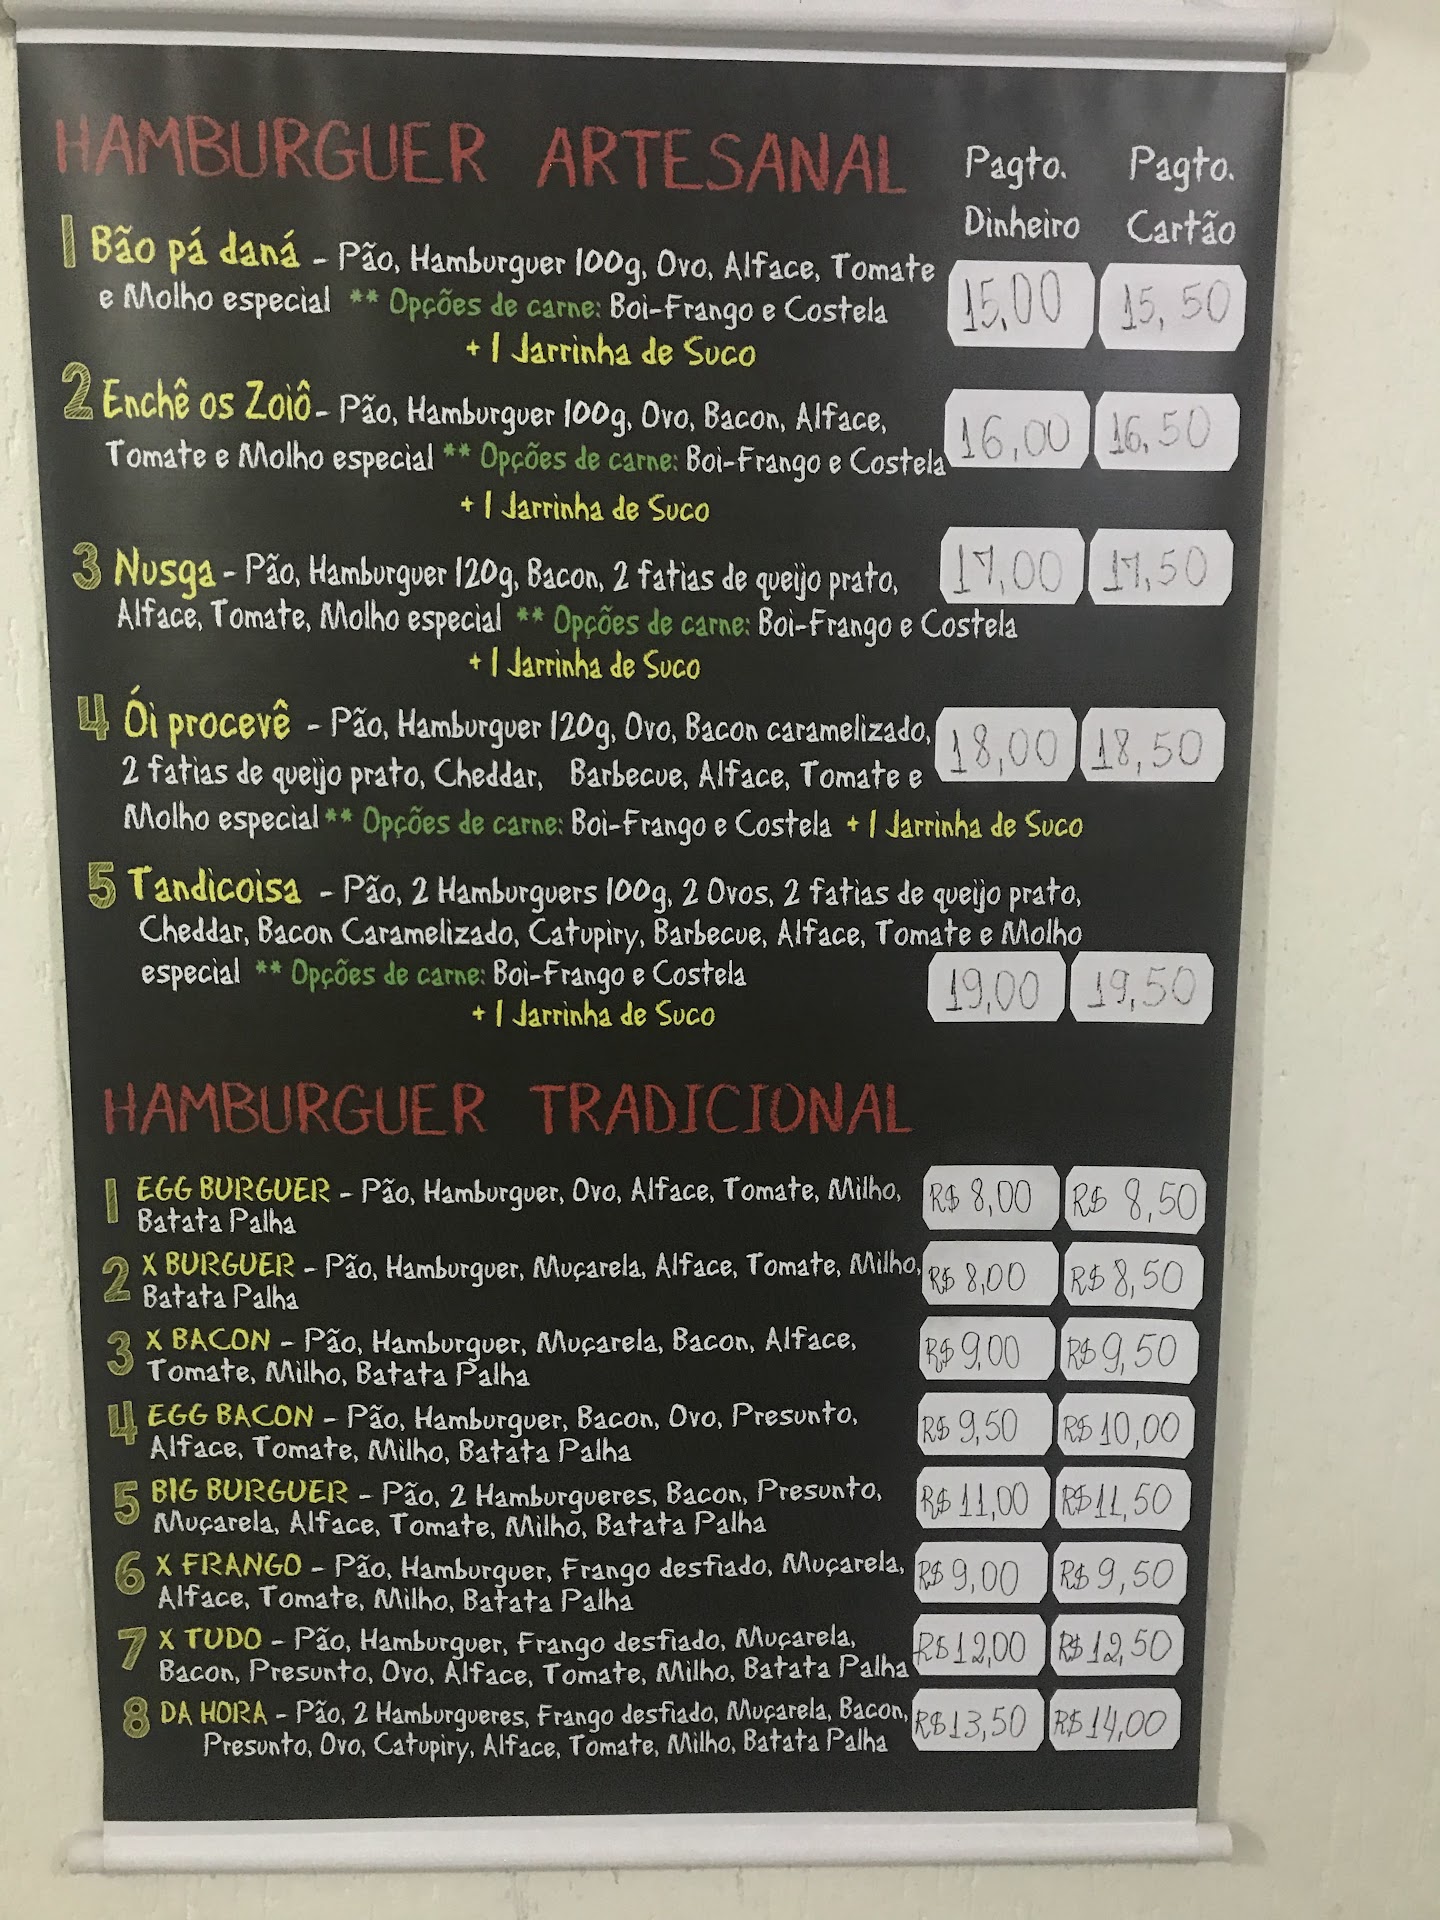 HAMBURGUER ARTESANAL
Pagto. Dinheiro
Pagto. Cartão
1 Bão pá daná - Pão, Hamburguer 100g, Ovo, Alface, Tomate
e Molho especial ** Opções de carne: Boi-Frango e Costela
15,00 15,50
+ 1 Jarrinha de Suco
2 Enchê os Zoiô - Pão, Hamburguer 100g, Ovo, Bacon, Alface,
Tomate e Molho especial ** Opções de carne: Boi-Frango e Costela
16,00 16,50
+ 1 Jarrinha de Suco
3 Nusga - Pão, Hamburguer 120g, Bacon, 2 fatias de queijo prato,
17,00 17,50
Alface, Tomate, Molho especial ** Opções de carne: Boi-Frango e Costela
+ 1 Jarrinha de Suco
4 Ói procevê - Pão, Hamburguer 120g, Ovo, Bacon caramelizado,
18,00 18,50
2 fatias de queijo prato, Cheddar, Barbecue, Alface, Tomate e
Molho especial ** Opções de carne: Boi-Frango e Costela + 1 Jarrinha de Suco
5 Tandicoisa - Pão, 2 Hamburguers 100g, 2 Ovos, 2 fatias de queijo prato,
Cheddar, Bacon Caramelizado, Catupiry, Barbecue, Alface, Tomate e Molho
especial ** Opções de carne: Boi-Frango e Costela
19,00 19,50
+ 1 Jarrinha de Suco
HAMBURGUER TRADICIONAL
1 EGG BURGUER - Pão, Hamburguer, Ovo, Alface, Tomate, Milho,
R$ 8,00 R$ 8,50
Batata Palha
2 X BURGUER - Pão, Hamburguer, Muçarela, Alface, Tomate, Milho,
R$ 8,00 R$ 8,50
Batata Palha
3 X BACON - Pão, Hamburguer, Muçarela, Bacon, Alface,
R$ 9,00 R$ 9,50
Tomate, Milho, Batata Palha
4 EGG BACON - Pão, Hamburguer, Bacon, Ovo, Presunto,
R$ 9,50 R$ 10,00
Alface, Tomate, Milho, Batata Palha
5 BIG BURGUER - Pão, 2 Hamburgueres, Bacon, Presunto,
R$ 11,00 R$ 11,50
Muçarela, Alface, Tomate, Milho, Batata Palha
6 X FRANGO - Pão, Hamburguer, Frango desfiado, Muçarela,
R$ 9,00 R$ 9,50
Alface, Tomate, Milho, Batata Palha
7 X TUDO - Pão, Hamburguer, Frango desfiado, Muçarela,
R$ 12,00 R$ 12,50
Bacon, Presunto, Ovo, Alface, Tomate, Milho, Batata Palha
8 DA HORA - Pão, 2 Hamburgueres, Frango desfiado, Muçarela, Bacon,
R$ 13,50 R$ 14,00
Presunto, Ovo, Catupiry, Alface, Tomate, Milho, Batata Palha